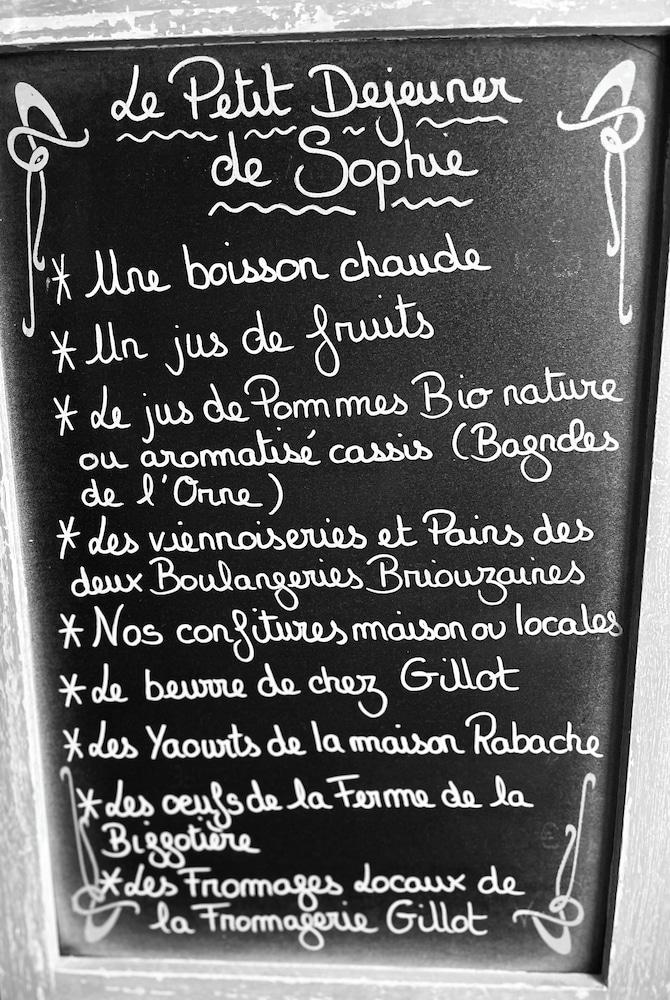 Le Petit Dejeuner
de Sophie
* Une boisson chaude
* Un jus de fruits
* Le jus de Pommes Bio nature
ou aromatisé cassis (Bagnoles
de l'Orne)
* Les viennoiseries et Pains des
deux Boulangeries Briouzaines
* Nos confitures maison ou locales
* Le beurre de chez Gillot
* Les Yaourts de la maison Rabache
* Les oeufs de la Ferme de la
Bizzotière
* Les Fromages Locaux de
la Fromagerie Gillot